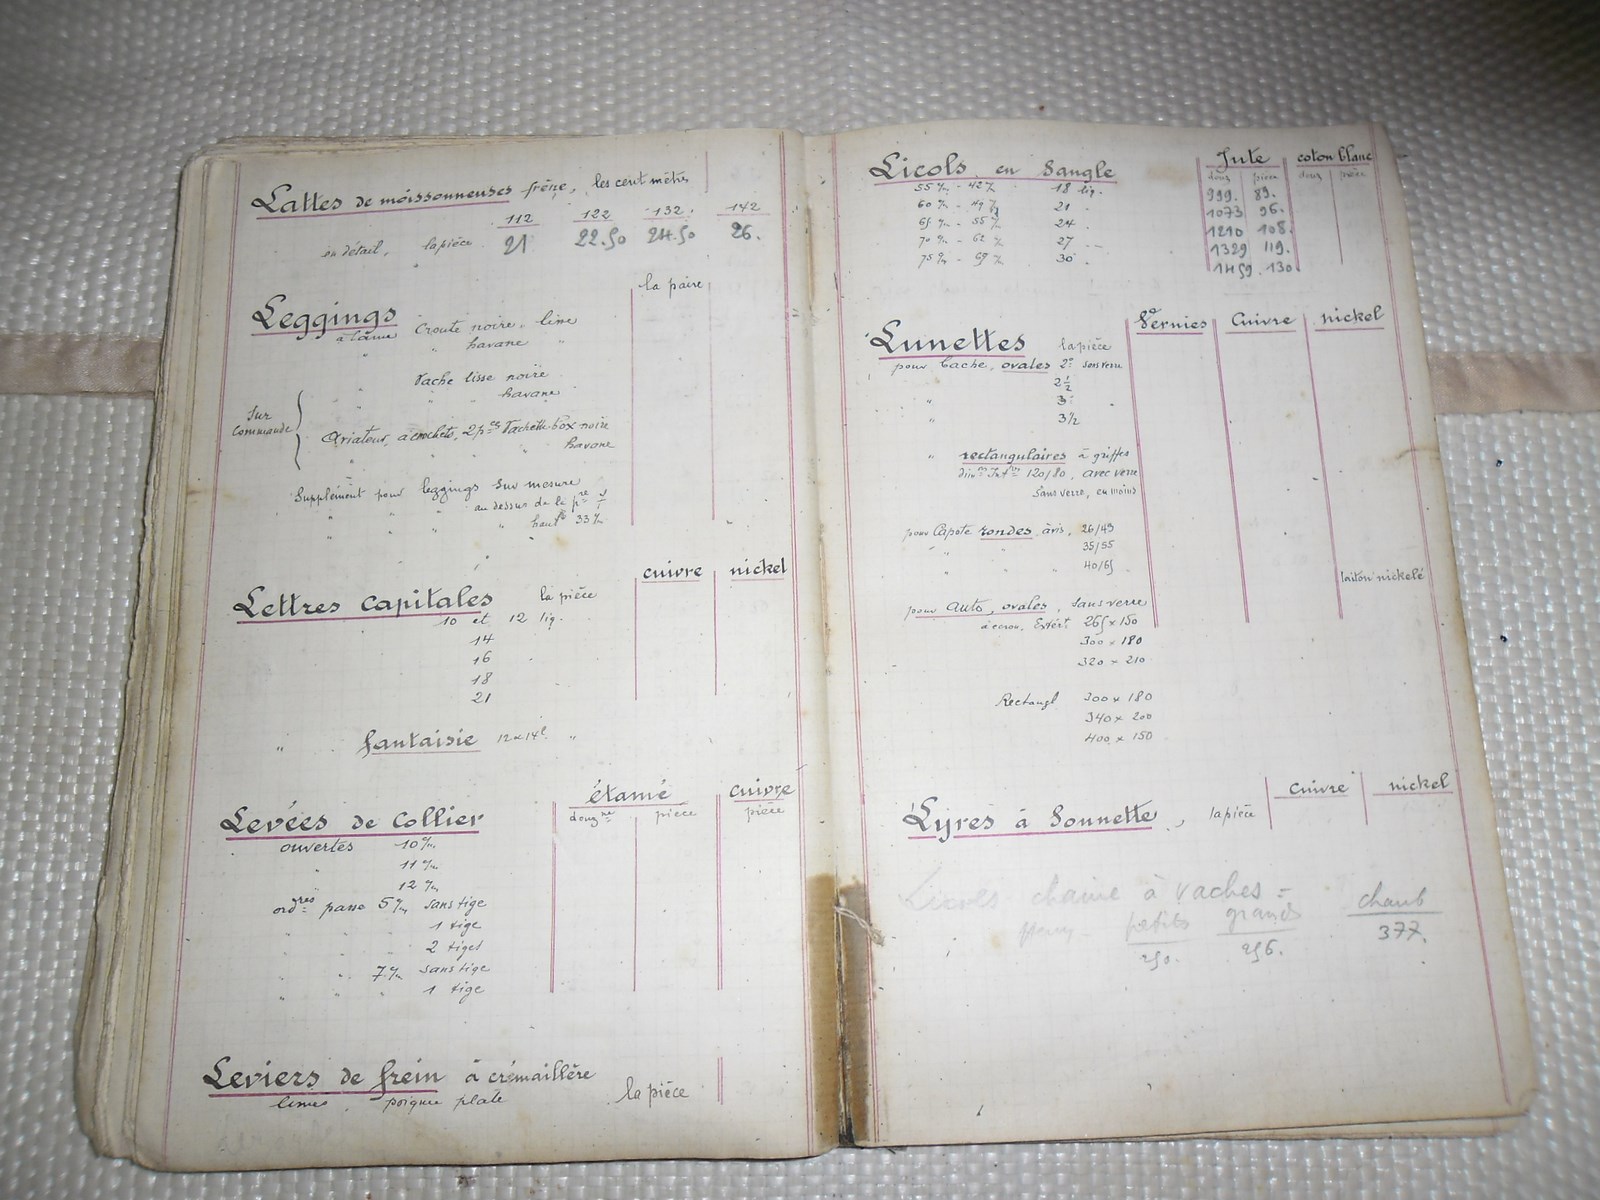 Lattes de moissonneuses frêne, les cent mètres
112 122 132 142
en détail, la pièce 21 22.50 24.50 26.
la paire
Leggings
à lame Croute noire, line
" " havane "
" Vache lisse noire
" " " havane
Sur
Commande
Aviateur, à crochets, 2 p ces Vachette box noire
" " " havane
Supplément pour leggings sur mesure
" " " au dessus de la p re
" " " haut r 33 c/m
cuivre nickel
Lettres capitales la pièce
10 et 12 lig.
14
16
18
21
" fantaisie 12 x 14 l "
étamé cuivre
Levées de collier douz ne pièce pièce
ouvertes 10 c/m
" 11 c/m
12 c/m
ord res passe 5 c/m sans tige
" " 1 tige
" " 2 tiges
" " 7 c/m sans tige
" " " 1 tige
Leviers de frein à crémaillère
limés, poignée plate la pièce
Licols en Sangle Jute coton blanc
douz pièce douz pièce
55 c/m - 42 c/m 18 lig. 999. 89.
60 c/m - 49 c/m 21 . 1073 96.
65 c/m - 55 c/m 24 . 1210 108.
70 c/m - 62 c/m 27 . 1329 119.
75 c/m - 69 c/m 30 . 1459. 130.
Vernies Cuivre nickel
Lunettes la pièce
pour Bache, ovales 2 o sans verre
2 1/2
" 3 o
" 3 1/2
" rectangulaires à griffes
dim on Int re 120/80, avec verre
Sans verre, en moins
pour Capote rondes, à vis, 26/43
" " " 35/55
" " " 40/65
laiton nickelé
pour Auto, ovales, sans verre
à écrou, Extér t 265 x 150
300 x 180
320 x 210
Rectangl 300 x 180
340 x 200
400 x 150
cuivre nickel
Lyres à Sonnette, la pièce
Licols chaine à vaches =
petits grands chaub
250. 256. 377.